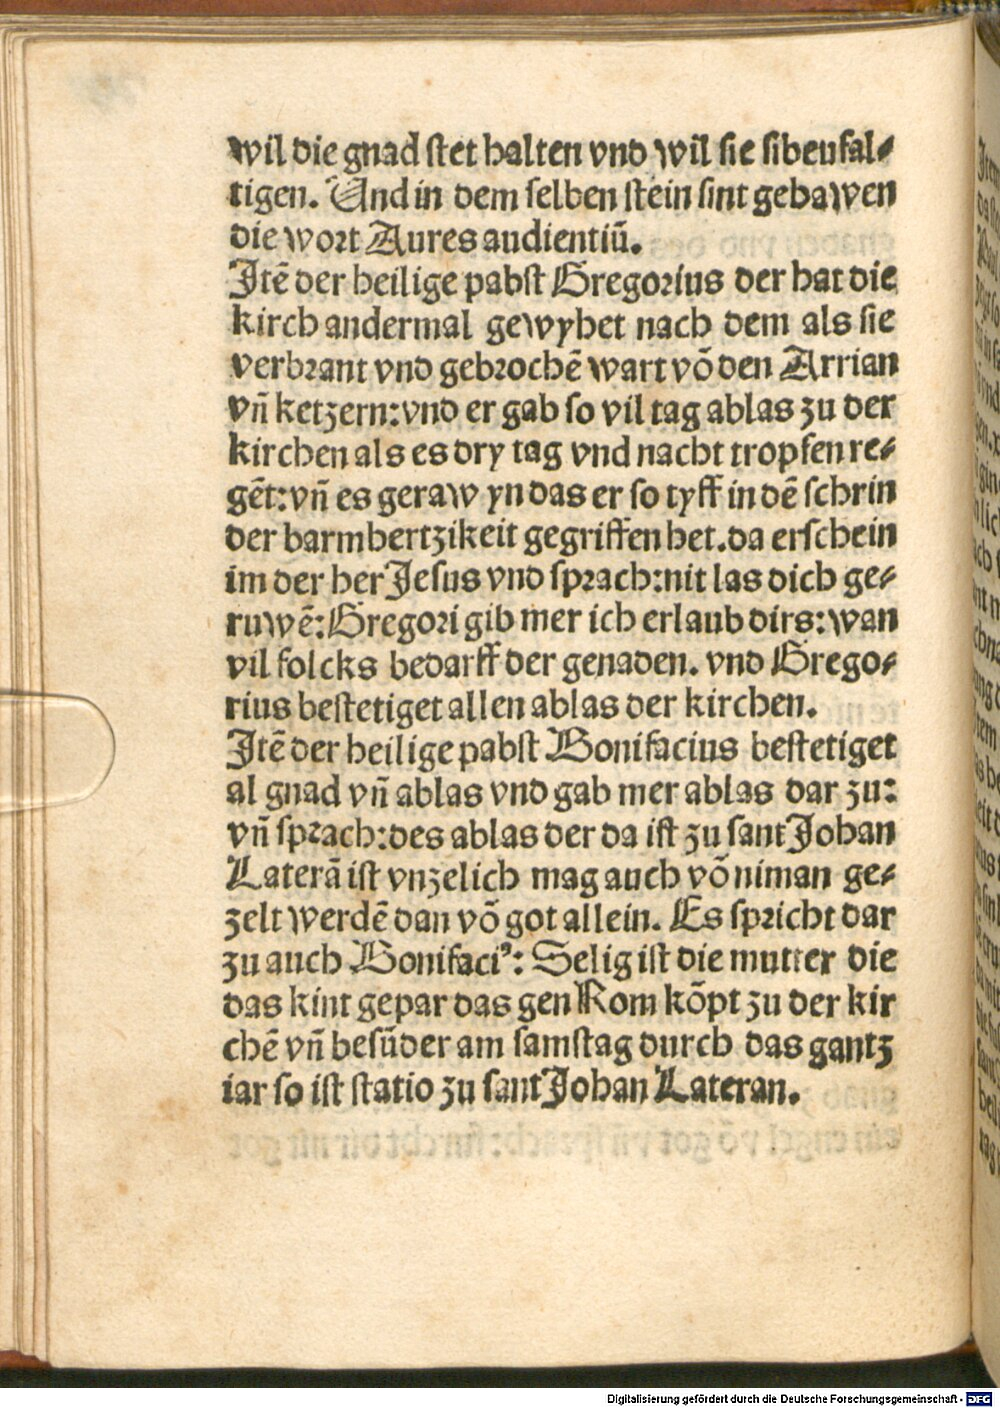 wil die gnad stet halten vnd wil sie sibenfal⸗
tigen. Und in dem selben stein sint gehawen
die wort Aures audientiū.
Itē der heilige pabst Gregorius der hat die
kirch andermal gewyhet nach dem als sie
verbrant vnd gebrochē wart vō den Arrian
vn̄ ketzern: vnd er gab so vil tag ablas zu der
kirchen als es dry tag vnd nacht tropfen re⸗
gēt: vn̄ es geraw yn das er so tyff in dē schrin
der barmhertzikeit gegriffen het. da erschein
im der her Jesus vnd sprach: nit las dich ge⸗
ruwē: Gregori gib mer ich erlaub dirs: wan
vil folcks bedarff der genaden. vnd Grego⸗
rius bestetiget allen ablas der kirchen.
Itē der heilige pabst Bonifacius bestetiget
al gnad vn̄ ablas vnd gab mer ablas dar zu:
vn̄ sprach: des ablas der da ist zu sant Johan
Laterā ist vnzelich mag auch vō niman ge⸗
zelt werdē dan vō got allein. Es spricht dar
zu auch Bonifaciꝰ: Selig ist die mutter die
das kint gepar das gen Rom kōpt zu der kir
chē vn̄ besūder am samstag durch das gantz
iar so ist statio zu sant Johan Lateran.
Digitalisierung gefördert durch die Deutsche Forschungsgemeinschaft - DFG